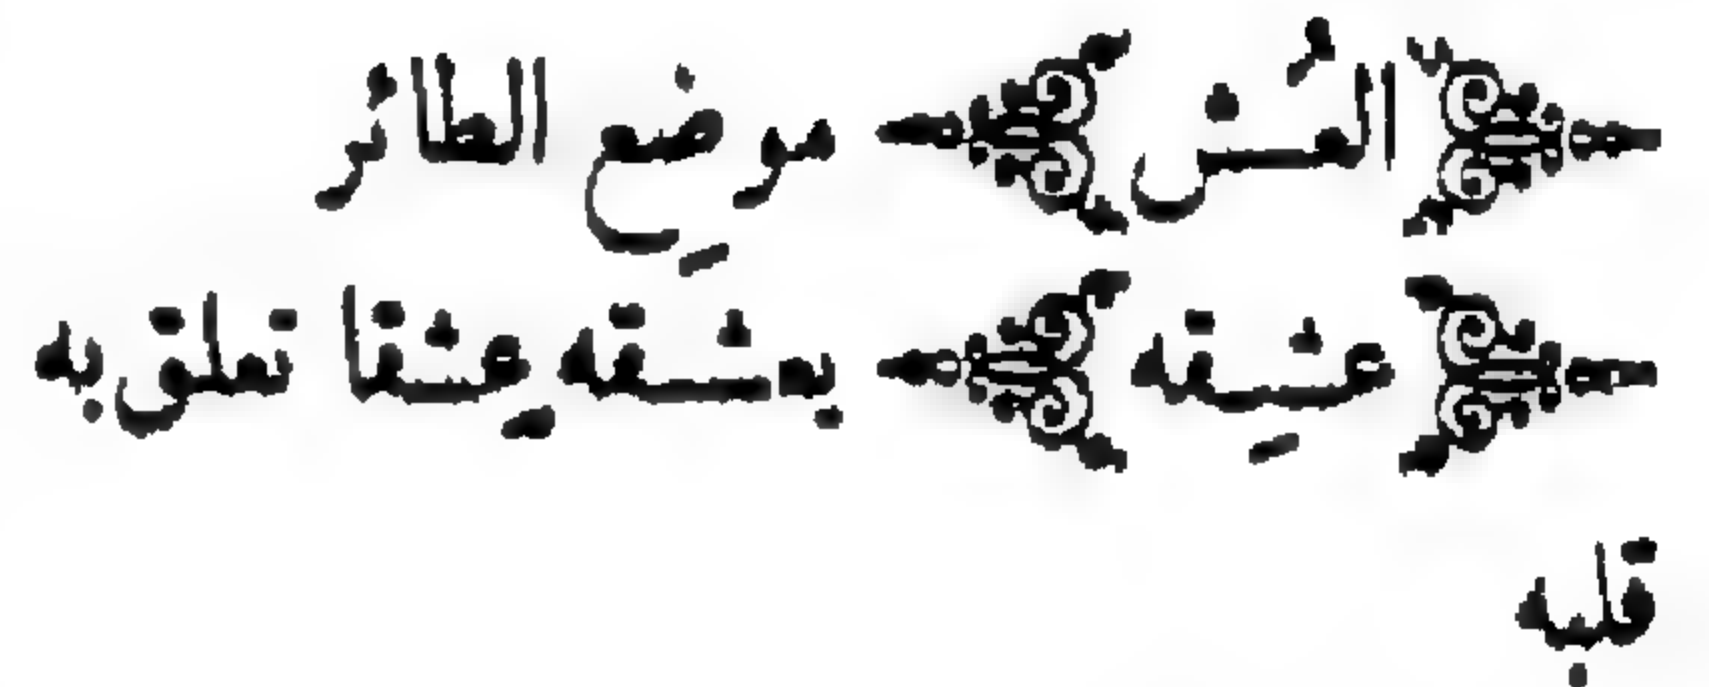 العُش موضِع الطائر
عشِقه يعشقه عِشقا تعلق به
قلبه